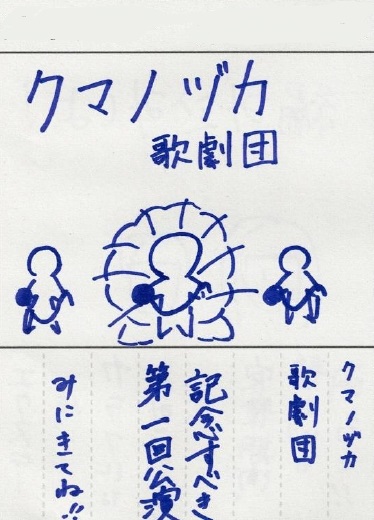 クマノヅカ
歌劇団
クマノヅカ
歌劇団
記念すべき
第一回公演
みにきてね!!